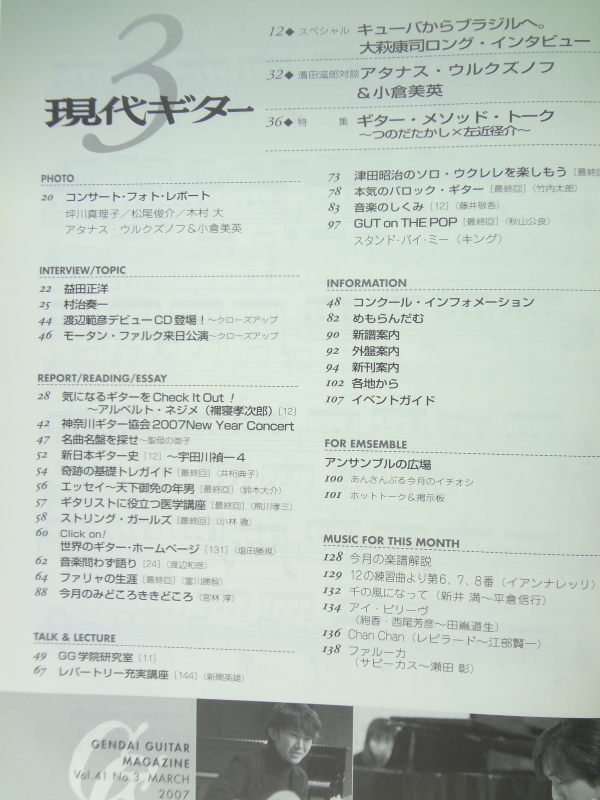 3
現代ギター
12◆ スペシャル キューバからブラジルへ。
大萩康司ロング・インタビュー
32◆ 濱田滋郎対談 アタナス・ウルクズノフ
&小倉美英
36◆ 特 集 ギター・メソッド・トーク
〜つのだたかし×左近径介〜
PHOTO
20 コンサート・フォト・レポート
坪川真理子/松尾俊介/木村 大
アタナス・ウルクズノフ&小倉美英
INTERVIEW/TOPIC
22 益田正洋
25 村治奏一
44 渡辺範彦デビューCD登場!〜クローズアップ
46 モータン・ファルク来日公演〜クローズアップ
REPORT/READING/ESSAY
28 気になるギターをCheck It Out!
〜アルベルト・ネジメ(禰寝孝次郎)[12]
42 神奈川ギター協会2007New Year Concert
47 名曲名盤を探せ〜聖母の御子
52 新日本ギター史[12]〜宇田川禎一4
54 奇跡の基礎トレガイド[最終回](井桁典子)
56 エッセイ〜天下御免の年男[最終回](鈴木大介)
57 ギタリストに役立つ医学講座[最終回](熊川孝三)
58 ストリング・ガールズ[最終回](小林 徹)
60 Click on!
世界のギター・ホームページ[131](塩田勝規)
62 音楽問わず語り[24](渡辺和彦)
64 ファリャの生涯[最終回](富川勝智)
88 今月のみどころききどころ(宮林 淳)
TALK & LECTURE
49 GG学院研究室[11]
67 レパートリー充実講座[144](新間英雄)
73 津田昭治のソロ・ウクレレを楽しもう[最終
78 本気のバロック・ギター[最終回](竹内太郎)
83 音楽のしくみ[12](藤井敬吾)
97 GUT on THE POP[最終回](秋山公良)
スタンド・バイ・ミー(キング)
INFORMATION
48 コンクール・インフォメーション
82 めもらんだむ
90 新譜案内
92 外盤案内
94 新刊案内
102 各地から
107 イベントガイド
FOR EMSEMBLE
アンサンブルの広場
100 あんさんぶる今月のイチオシ
101 ホットトーク&掲示板
MUSIC FOR THIS MONTH
128 今月の楽譜解説
129 12の練習曲より第6、7、8番(イアンナレッリ)
132 千の風になって(新井 満〜平倉信行)
134 アイ・ビリーヴ
(絢香・西尾芳彦〜田嶌道生)
136 Chan Chan(レピラード〜江部賢一)
138 ファルーカ
(サビーカス〜瀬田 彰)
GG
GENDAI GUITAR
MAGAZINE
Vol.41 No.3, MARCH
2007